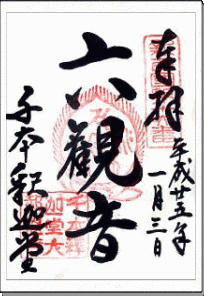 奉拝
平成廿五年
一月三日
六観音
千本釈迦堂